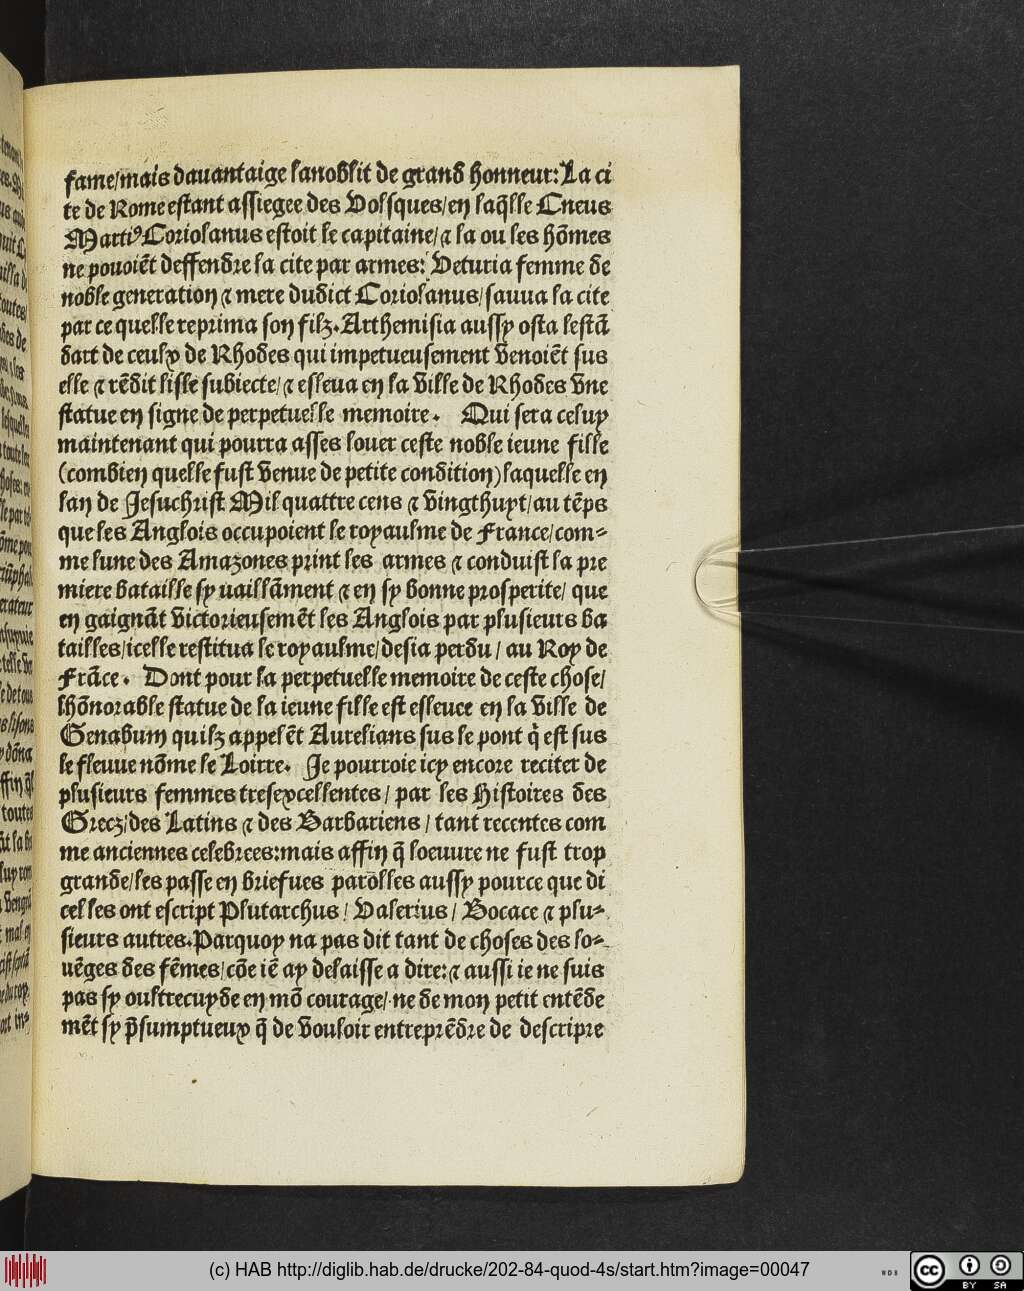 fame/mais dauantaige lanoblit de grand honneur: La ci
te de Rome estant assiegee des Volsques/en laq̃lle Cneus
Martiꝰ Coriolanus estoit le capitaine/⁊ la ou les hõmes
ne pouoiẽt deffendre la cite par armes: Veturia femme de
noble generation ⁊ mere dudict Coriolanus/sauua la cite
par ce quelle reprima son filz. Arthemisia aussy osta lestã
dart de ceulx de Rhodes qui impetueusement venoiẽt sus
elle ⁊ rẽdit lisle subiecte/⁊ esleua en la ville de Rhodes vne
statue en signe de perpetuelle memoire. Qui sera celuy
maintenant qui pourra asses louer ceste noble ieune fille
(combien quelle fust venue de petite condition) laquelle en
lan de Jesuchrist Mil quattre cens ⁊ vingthuyt/au tẽps
que les Anglois occupoient le royaulme de France/com-
me lune des Amazones print les armes ⁊ conduist la pre
miere bataille sy uaillãment ⁊ en sy bonne prosperite/ que
en gaignãt victorieusemẽt les Anglois par plusieurs ba
tailles/icelle restitua le royaulme/desia perdu/ au Roy de
Frãce. Dont pour la perpetuelle memoire de ceste chose/
lhõnorable statue de la ieune fille est esleuee en la ville de
Genabum quilz appelẽt Aurelians sus le pont q̃ est sus
le fleuue nõme le Loirre. Je pourroie icy encore reciter de
plusieurs femmes tresexcellentes/ par les Histoires des
Grecz/des Latins ⁊ des Barbariens/ tant recentes com
me anciennes celebrees:mais affin q̃ loeuure ne fust trop
grande/les passe en briefues parolles aussy pource que di
celles ont escript Plutarchus/ Valerius/ Bocace ⁊ plu-
sieurs autres. Parquoy na pas dit tant de choses des lo-
uẽges des fẽmes/cõe iẽ ay delaisse a dire:⁊ aussi ie ne suis
pas sy oultrecuyde en mõ courage/ ne de mon petit entẽde
mẽt sy p̃sumptueux q̃ de vouloir entreprẽdre de descripre
(c) HAB http://diglib.hab.de/drucke/202-84-quod-4s/start.htm?image=00047
cc BY SA